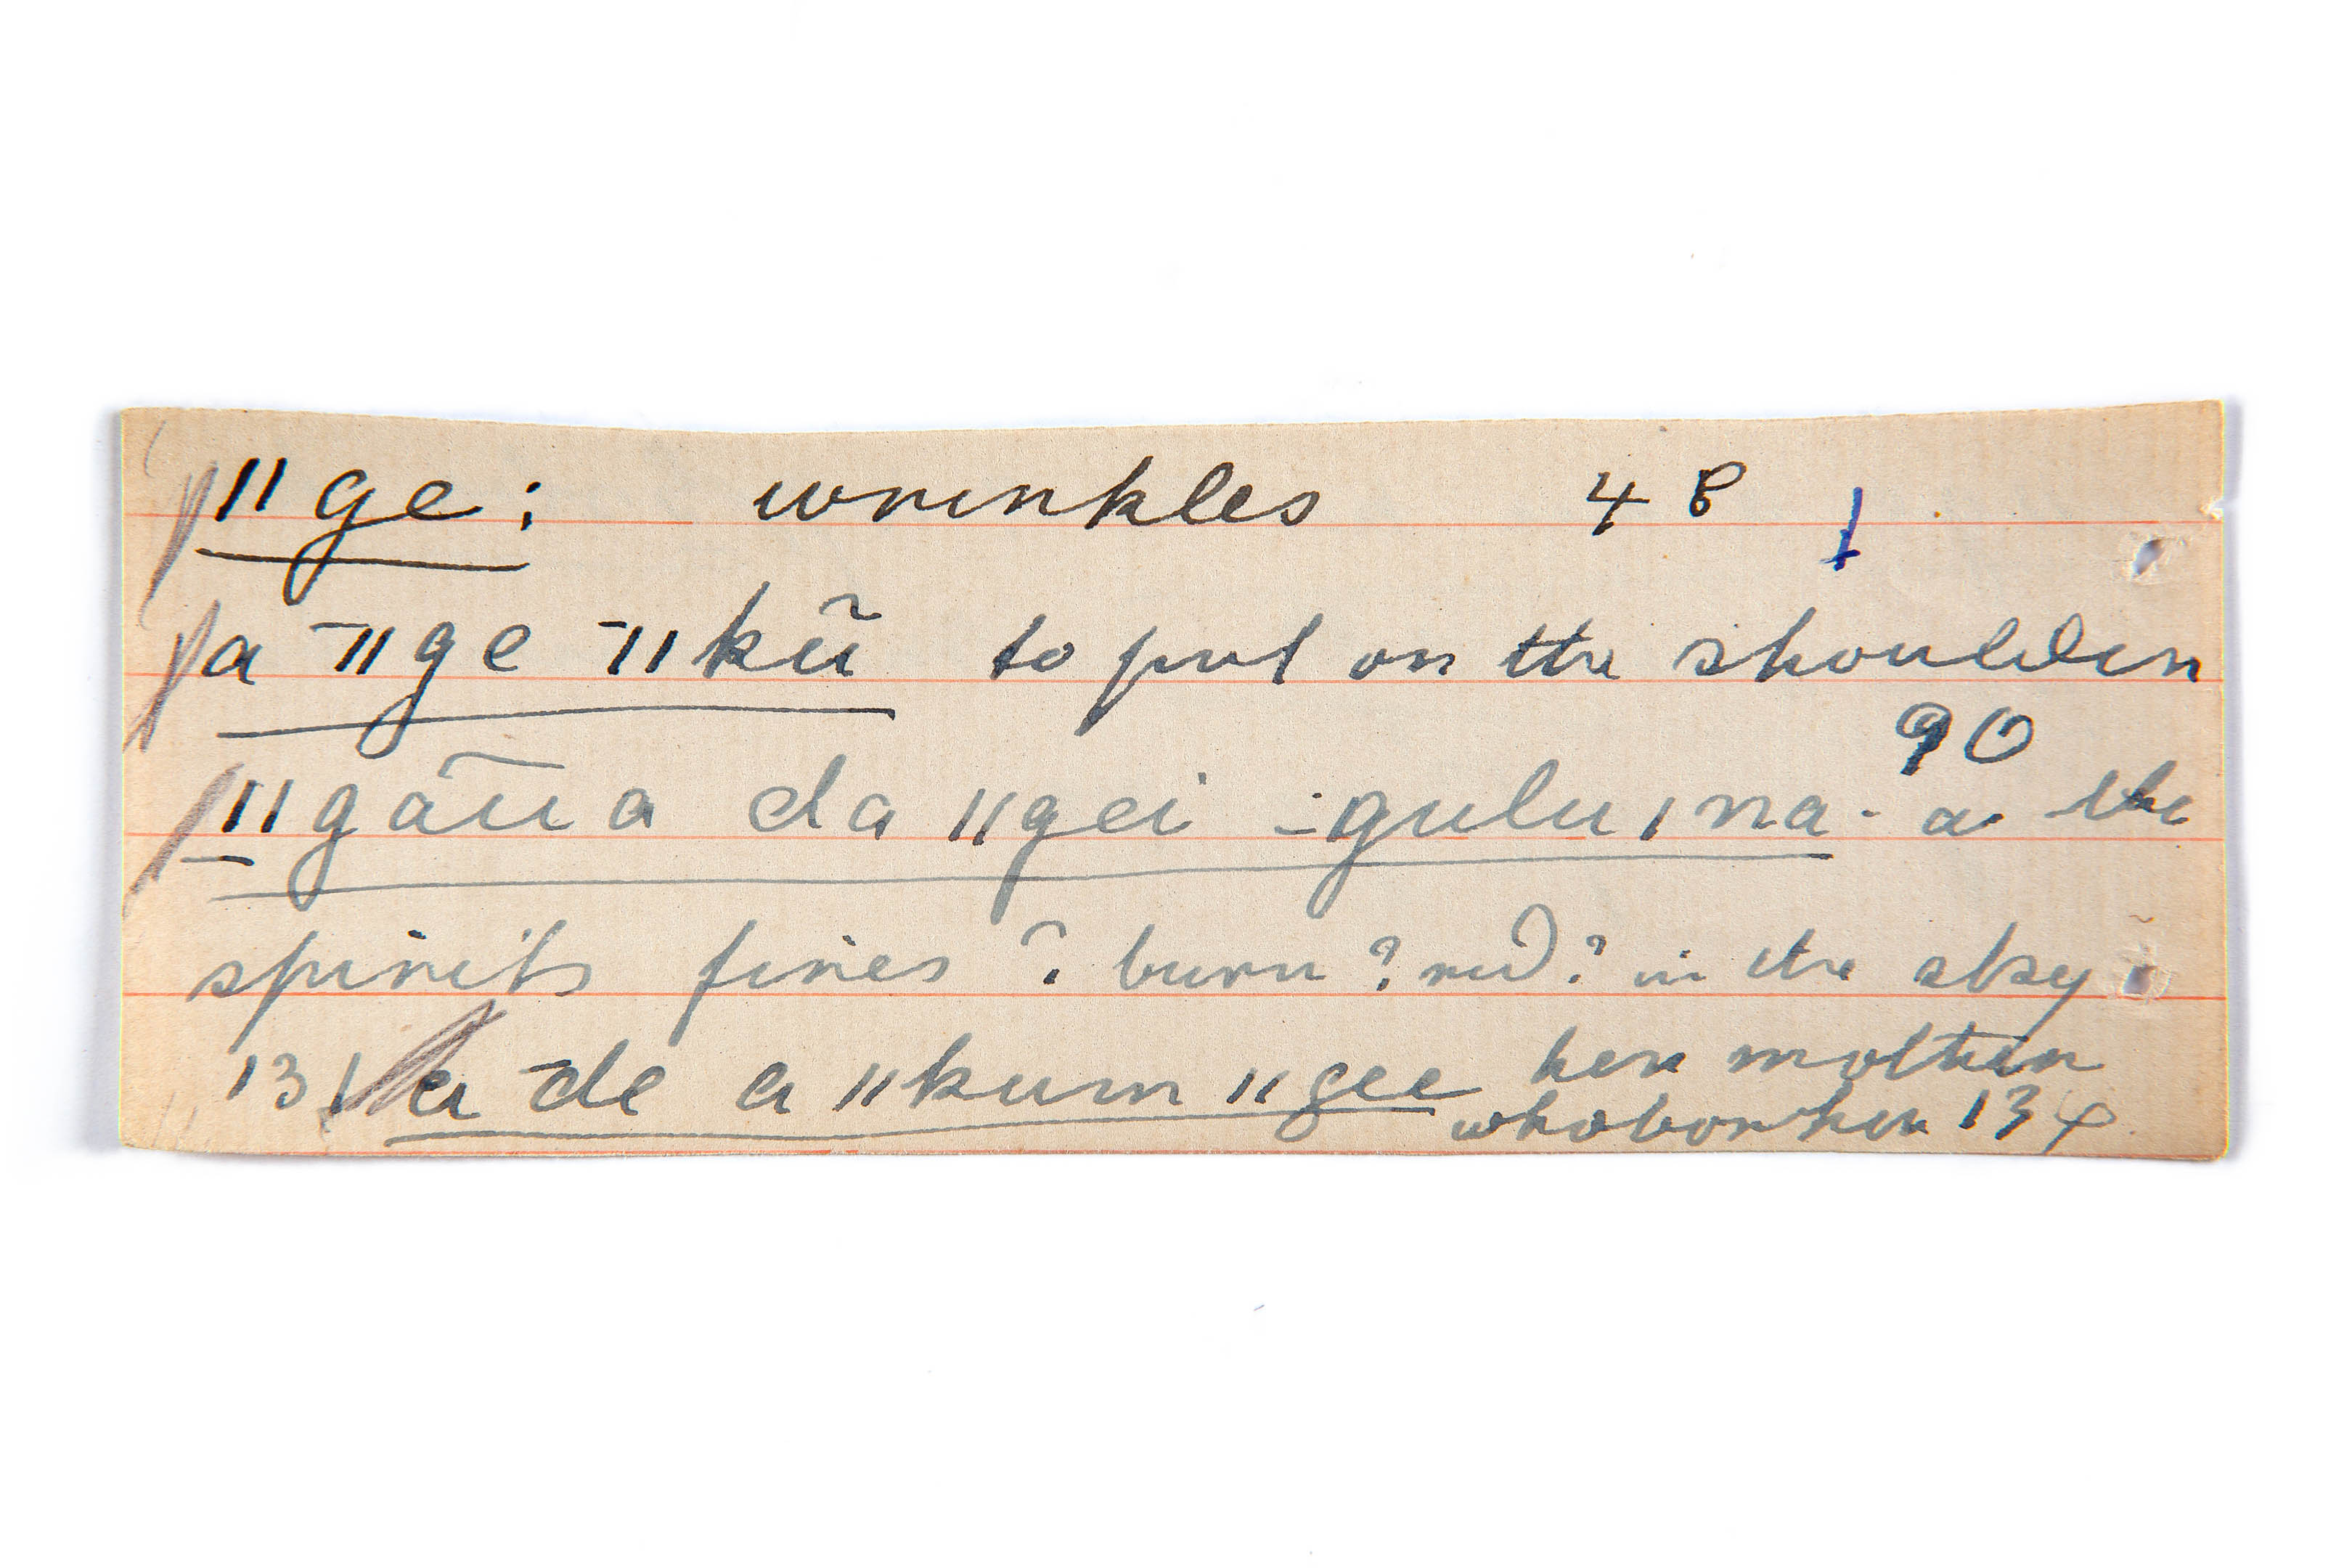 ǁge: wrinkles 48
a ˉǁge ˉǁkũ to put on the shoulder
90
ǁgãũa da ǁgei -guluǀna - a the
spirits fires ? burn ? red ? in the sky
131 a de a ǁkum ǁgee her mother
who bore her 134